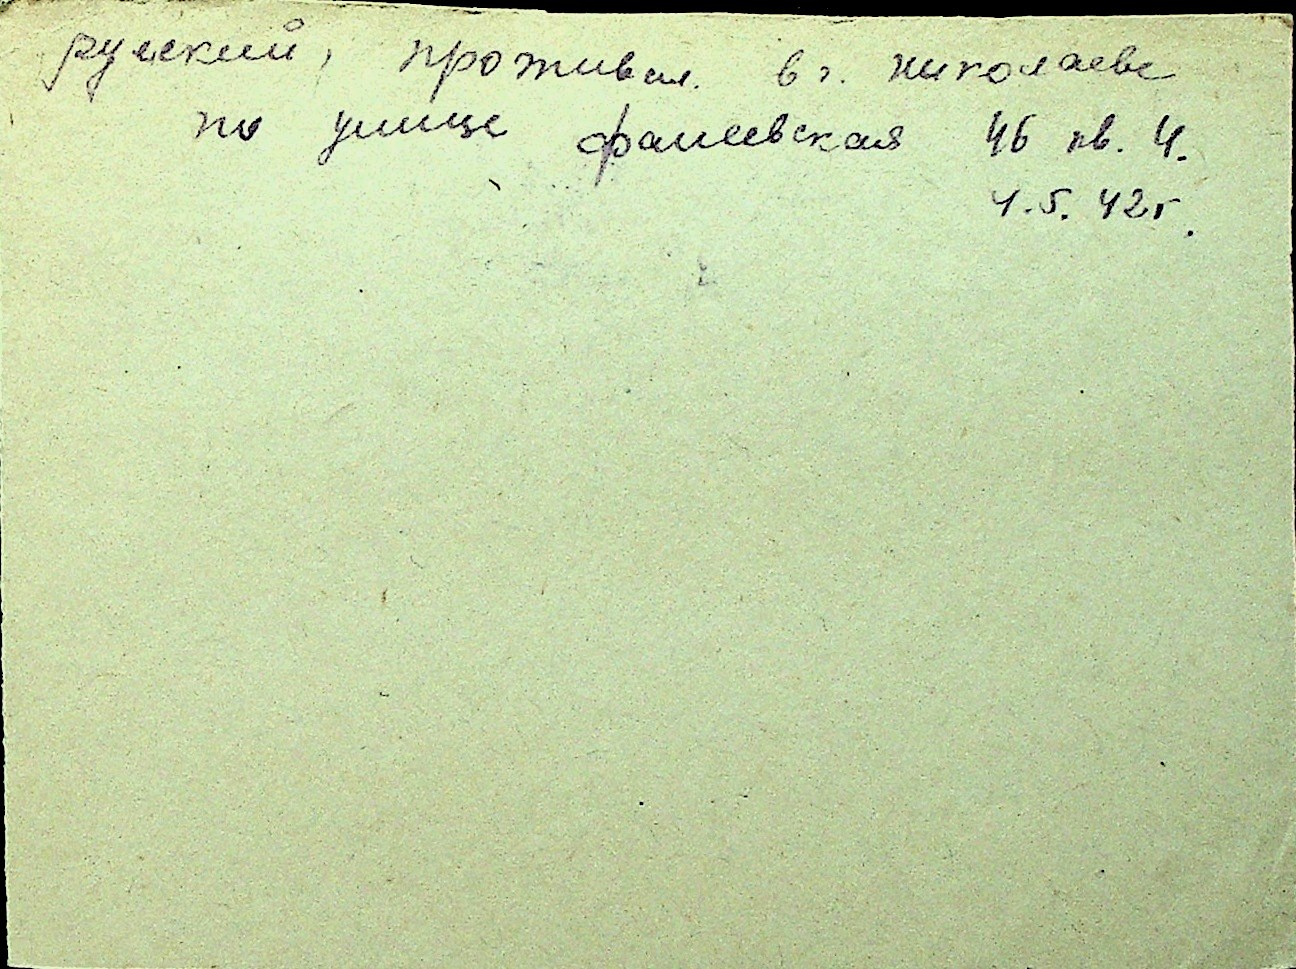 русский, проживал. в г. николаеве
по улице фалеевская 46 кв. 4.
4.5.42г.